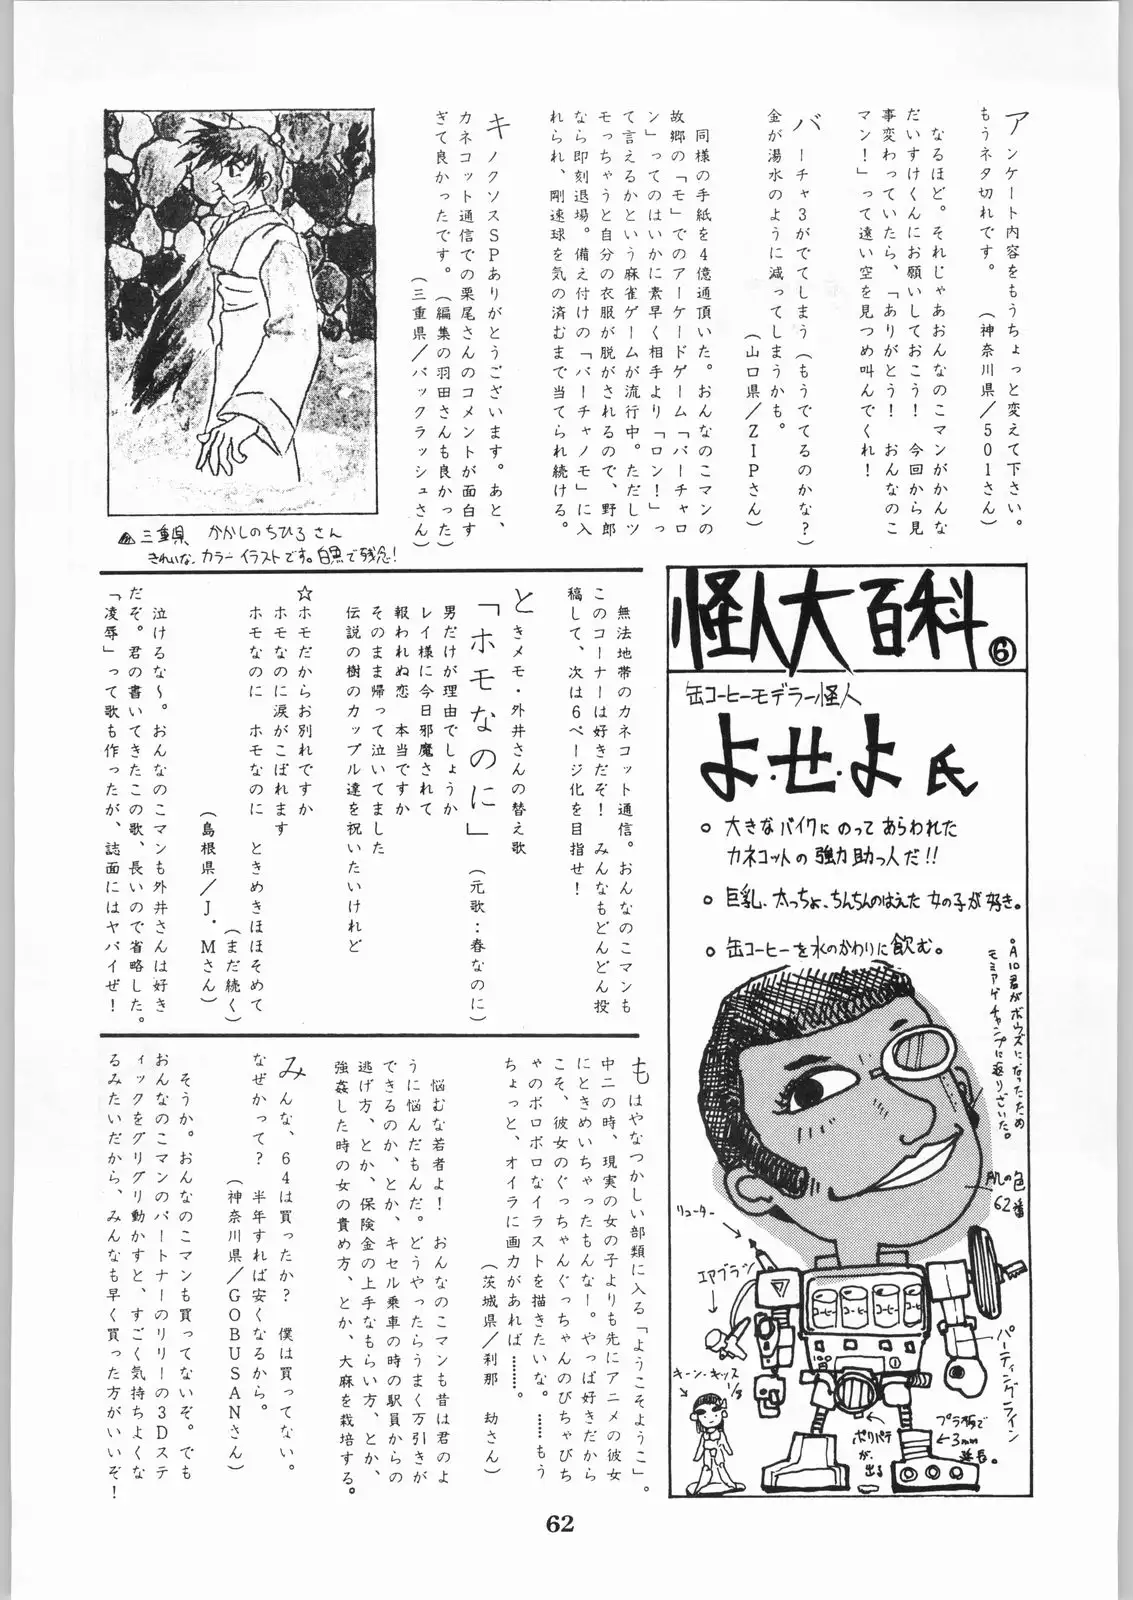 アンケート内容をもうちょっと変えて下さい。
もうネタ切れです。　（神奈川県／５０１さん）
なるほど。それじゃあおんなのこマンがかんな
だいすけくんにお願いしておこう！　今回から見
事変わっていたら、「ありがとう！　おんなのこ
マン！」って遠い空を見つめ叫んでくれ！
バーチャ３がでてしまう（もうでてるのかな？）
金が湯水のように減ってしまうかも。
（山口県／ＺＩＰさん）
同様の手紙を４億通頂いた。おんなのこマンの
故郷の「モ」でのアーケードゲーム「バーチャロ
ン」ってのはいかに素早く相手より「ロン！」っ
て言えるかという麻雀ゲームが流行中。ただしツ
モっちゃうと自分の衣服が脱がされるので、野郎
なら即刻退場。備え付けの「バーチャノモ」に入
れられ、剛速球を気の済むまで当てられ続ける。
キノクソスＳＰありがとうございます。あと、
カネコット通信での栗尾さんのコメントが面白す
ぎて良かったです。（編集の羽田さんも良かった）
（三重県／バックラッシュさん）
三重県　かかしのちひろさん
きれいな、カラーイラストです。白黒で残念！
無法地帯のカネコット通信。おんなのこマンも
このコーナーは好きだぞ！　みんなもどんどん投
稿して、次は６ページ化を目指せ！
ときメモ・外井さんの替え歌
「ホモなのに」（元歌：春なのに）
男だけが理由でしょうか
レイ様に今日邪魔されて
報われぬ恋　本当ですか
そのまま帰って泣いてました
伝説の樹のカップル達を祝いたいけれど
☆ホモだからお別れですか
ホモなのに涙がこぼれます
ホモなのに　ホモなのに　ときめきほほそめて
（まだ続く）
（島根県／Ｊ．Ｍさん）
泣けるな～。おんなのこマンも外井さんは好き
だぞ。君の書いてきたこの歌、長いので省略した。
「凌辱」って歌も作ったが、誌面にはヤバイぜ！
怪人大百科⑥
缶コーヒーモデラー怪人
よ・せ・よ氏
○大きなバイクにのってあらわれた
カネコットの強力助っ人だ!!
○巨乳、太っちょ、ちんちんのはえた女の子が好き。
○缶コーヒーを水のかわりに飲む。
○Ａ１０君がボウズになったため
モミアゲチャンプに返りざいた。
肌の色
62番
リューター
エアブラシ
キーン・キッス
1/8
コーヒー
コーヒー
コーヒー
コーヒー
パーティングライン
ポリパテ
が、
出る
プラ板で
←3mm
延長。
もはやなつかしい部類に入る「ようこそようこ」。
中二の時、現実の女の子よりも先にアニメの彼女
にときめいちゃったもんなー。やっぱ好きだから
こそ、彼女のぐっちゃんぐっちゃんのびちゃびち
ゃのボロボロなイラストを描きたいな。……もう
ちょっと、オイラに画力があれば……。
（茨城県／刹那　劫さん）
悩むな若者よ！　おんなのこマンも昔は君のよ
うに悩んだもんだ。どうやったらうまく万引きが
できるのか、とか、キセル乗車の時の駅員からの
逃げ方、とか、保険金の上手なもらい方、とか、
強姦した時の女の責め方、とか、大麻を栽培する。
みんな、６４は買ったか？　僕は買ってない。
なぜかって？　半年すれば安くなるから。
（神奈川県／ＧＯＢＵＳＡＮさん）
そうか。おんなのこマンも買ってないぞ。でも
おんなのこマンのパートナーのリリーの３Ｄステ
ィックをグリグリ動かすと、すごく気持ちよくな
るみたいだから、みんなも早く買った方がいいぞ！
62